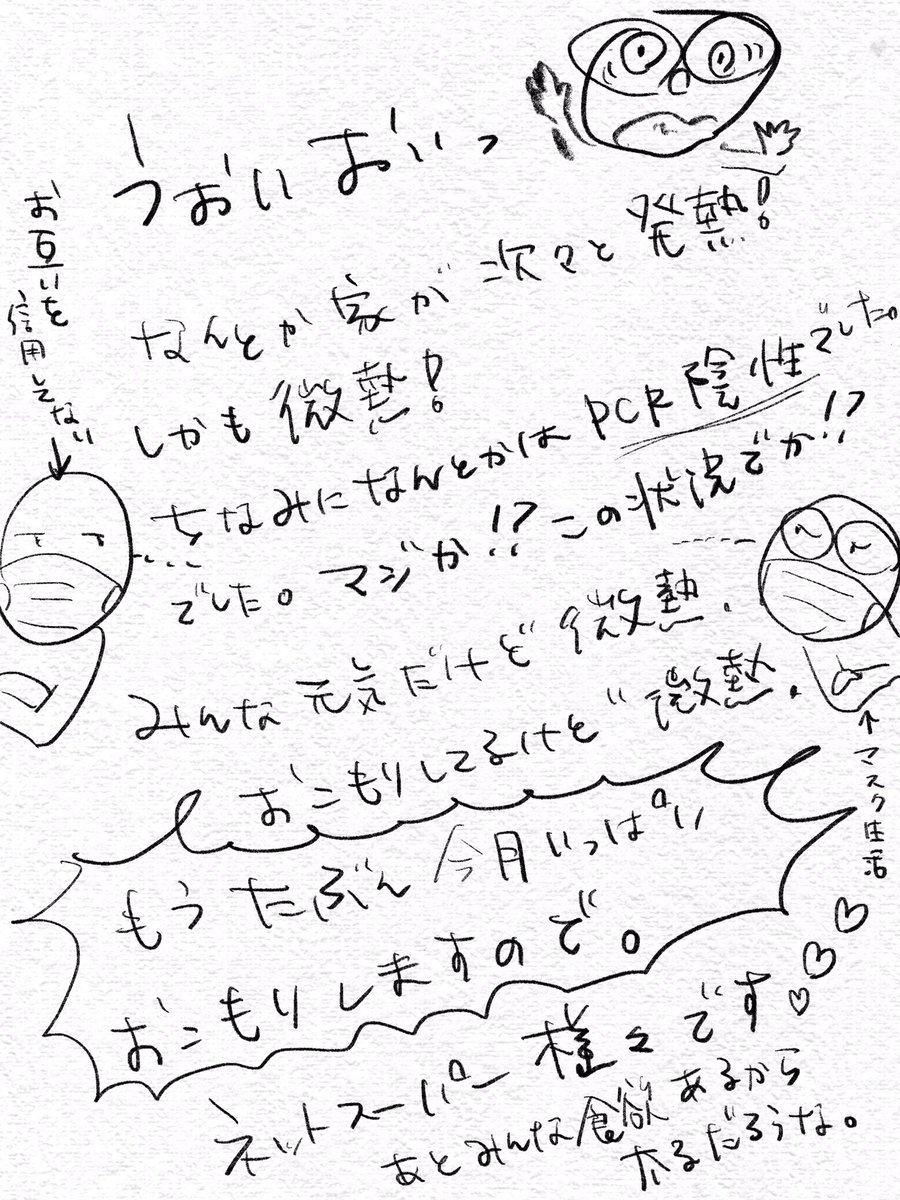 うおいおいっ
なんとか家が次々と発熱!
しかも微熱!
ちなみになんとかはPCR陰性でした。
でした。マジか!?この状況でか!?
みんな元気だけど微熱.
おこもりしてるけど微熱.
もうたぶん今月いっぱい
おこもりしますので。
ネットスーパー様々です
あとみんな食欲あるから
太るだろうな。
お互いを
信用してない
マスク生活